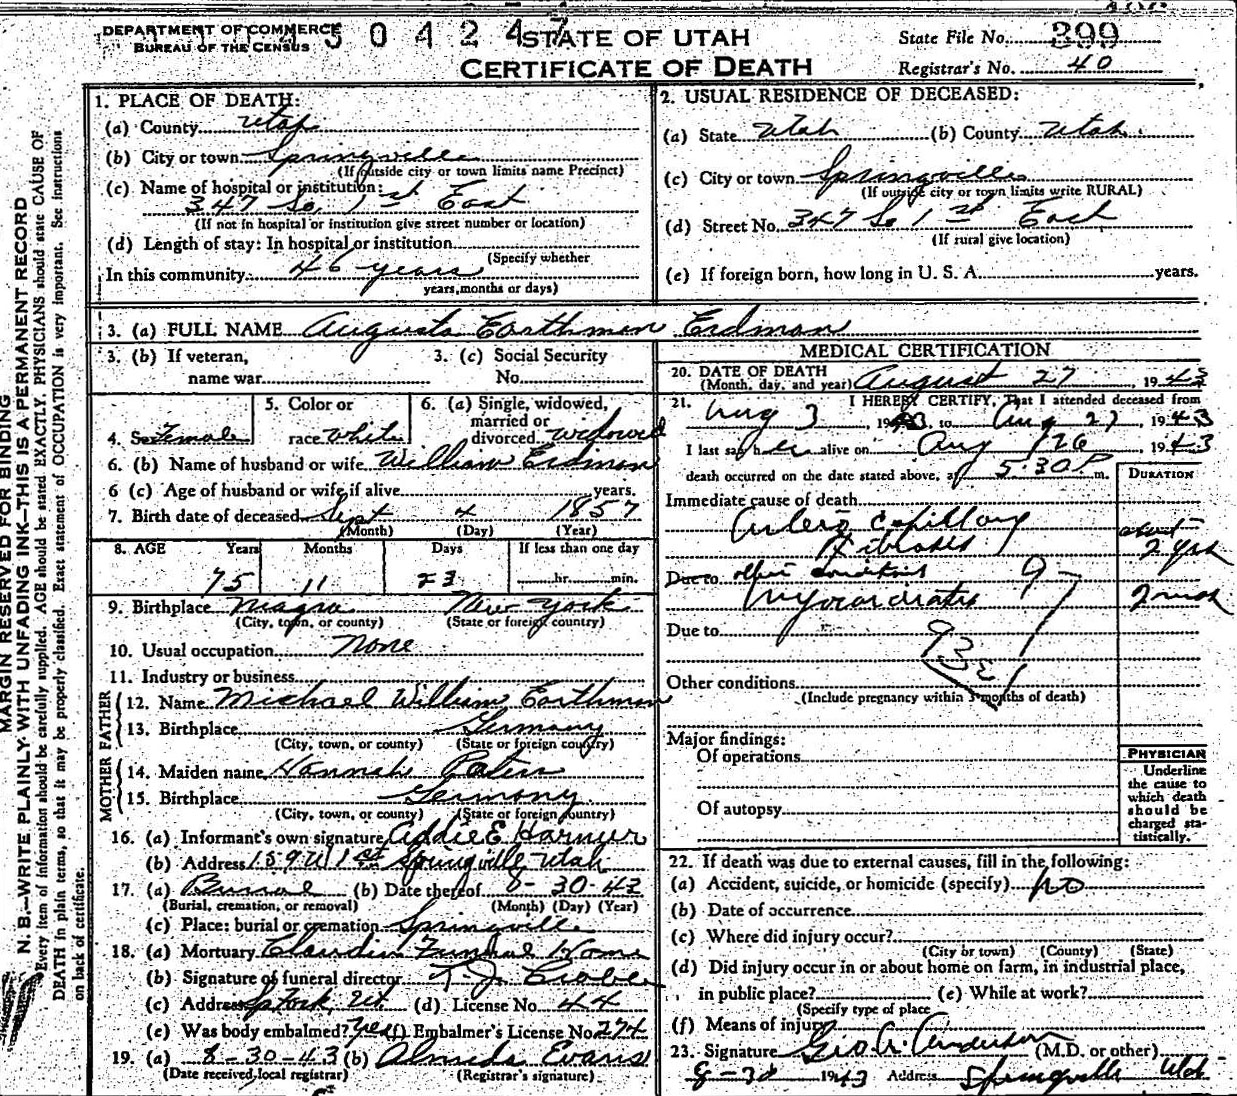 DEPARTMENT OF COMMERCE
BUREAU OF THE CENSUS
504247
STATE OF UTAH
CERTIFICATE OF DEATH
State File No. 399
Registrar's No. 40
MARGIN RESERVED FOR BINDING
N. B.—WRITE PLAINLY WITH UNFADING INK—THIS IS A PERMANENT RECORD
Every item of information should be carefully supplied. AGE should be stated EXACTLY. PHYSICIANS should state CAUSE OF
DEATH in plain terms, so that it may be properly classified. Exact statement of OCCUPATION is very important. See instructions
on back of certificate.
1. PLACE OF DEATH:
(a) County Utah
(b) City or town Springville
(If outside city or town limits name Precinct)
(c) Name of hospital or institution:
347 So. 1st East
(If not in hospital or institution give street number or location)
(d) Length of stay: In hospital or institution
(Specify whether
In this community 46 years
years, months or days)
2. USUAL RESIDENCE OF DECEASED:
(a) State Utah (b) County Utah
(c) City or town Springville
(If outside city or town limits write RURAL)
(d) Street No. 347 So 1st East
(If rural give location)
(e) If foreign born, how long in U. S. A. years.
3. (a) FULL NAME Augusta Earthmen Erdman
3. (b) If veteran,
name war
3. (c) Social Security
No.
4. Sex Female
5. Color or
race White
6. (a) Single, widowed,
married or
divorced widowed
6. (b) Name of husband or wife William Erdman
6 (c) Age of husband or wife if alive years.
7. Birth date of deceased Sept 4 1857
(Month) (Day) (Year)
8. AGE Years Months Days If less than one day
75 11 23 hr. min.
9. Birthplace New York
(City, town, or county) (State or foreign country)
10. Usual occupation None
11. Industry or business
FATHER
12. Name Michael William Earthmen
13. Birthplace Germany
(City, town, or county) (State or foreign country)
MOTHER
14. Maiden name Hannah
15. Birthplace Germany
(City, town, or county) (State or foreign country)
16. (a) Informant's own signature Addie E Harmer
(b) Address 159 W 1st Springville Utah
17. (a) Burial (b) Date thereof 8-30-43
(Burial, cremation, or removal) (Month) (Day) (Year)
(c) Place: burial or cremation Springville
18. (a) Mortuary Claudin Funeral Home
(b) Signature of funeral director
(c) Address Ut. (d) License No. 44
(e) Was body embalmed? yes (f) Embalmer's License No. 274
19. (a) 8-30-43 (b) Almeda Evans
(Date received local registrar) (Registrar's signature)
MEDICAL CERTIFICATION
20. DATE OF DEATH
(Month, day, and year) August 27, 1943
21. I HEREBY CERTIFY, That I attended deceased from
Aug 3, 1943, to Aug 27, 1943
I last saw her alive on Aug 26, 1943
death occurred on the date stated above, at 5:30 P m.
DURATION
Immediate cause of death
about
2 yrs
Due to
Myocarditis
Due to
93
Other conditions
(Include pregnancy within 3 months of death)
Major findings:
Of operations
Of autopsy
PHYSICIAN
Underline
the cause to
which death
should be
charged sta-
tistically.
22. If death was due to external causes, fill in the following:
(a) Accident, suicide, or homicide (specify) no
(b) Date of occurrence
(c) Where did injury occur?
(City or town) (County) (State)
(d) Did injury occur in or about home on farm, in industrial place,
in public place? (e) While at work?
(Specify type of place
(f) Means of injury
23. Signature Geo A. Anderson (M.D. or other)
8-30 1943 Address Springville Utah